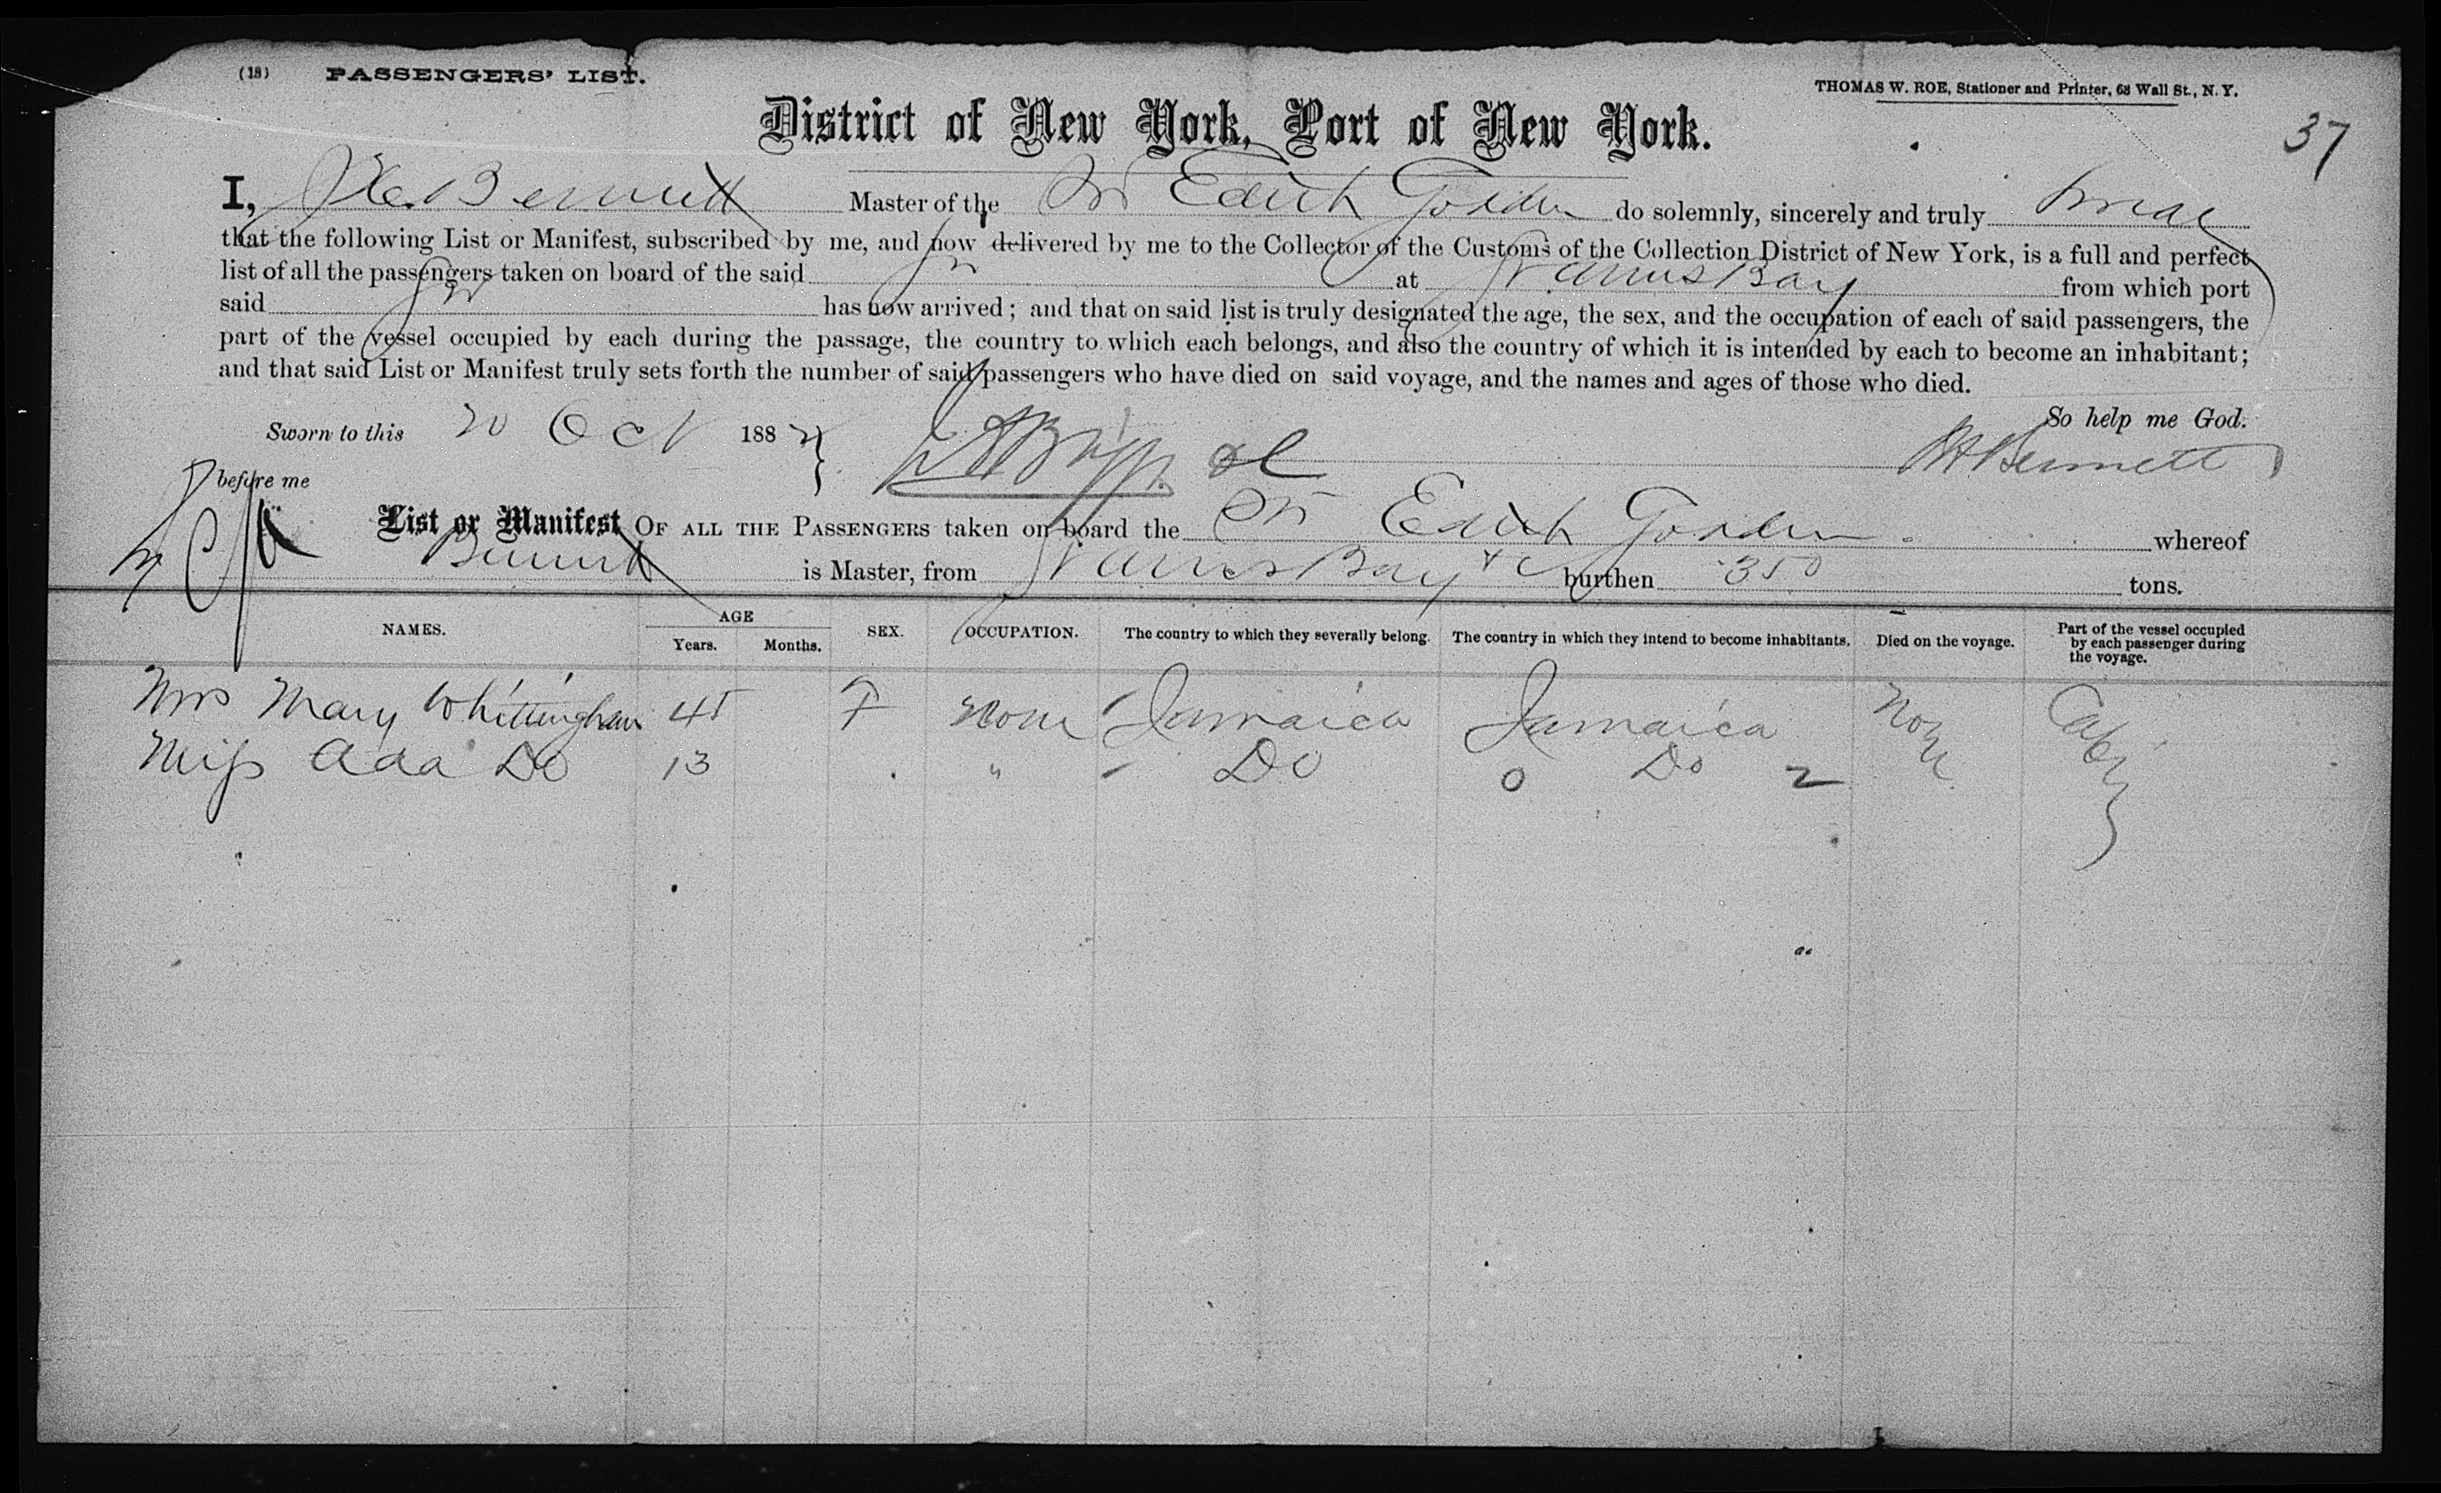 (18) PASSENGERS' LIST.
THOMAS W. ROE, Stationer and Printer, 63 Wall St., N. Y.
37
District of New York, Port of New York.
I, Bennett Master of the Edith Golden do solemnly, sincerely and truly swear
that the following List or Manifest, subscribed by me, and now delivered by me to the Collector of the Customs of the Collection District of New York, is a full and perfect
list of all the passengers taken on board of the said at St Anns Bay from which port
said has now arrived; and that on said list is truly designated the age, the sex, and the occupation of each of said passengers, the
part of the vessel occupied by each during the passage, the country to which each belongs, and also the country of which it is intended by each to become an inhabitant;
and that said List or Manifest truly sets forth the number of said passengers who have died on said voyage, and the names and ages of those who died.
So help me God.
Sworn to this 20 Oct 1882
before me
Bennett
List or Manifest OF ALL THE PASSENGERS taken on board the Edith Golden whereof
Bennett is Master, from St Anns Bay burthen 350 tons.
NAMES. AGE Years. Months. SEX. OCCUPATION. The country to which they severally belong. The country in which they intend to become inhabitants. Died on the voyage. Part of the vessel occupied by each passenger during the voyage.
Mrs Mary Whittingham 45 F None Jamaica Jamaica None Cabin
Miss Ada Do 13 " Do 0 Do 2